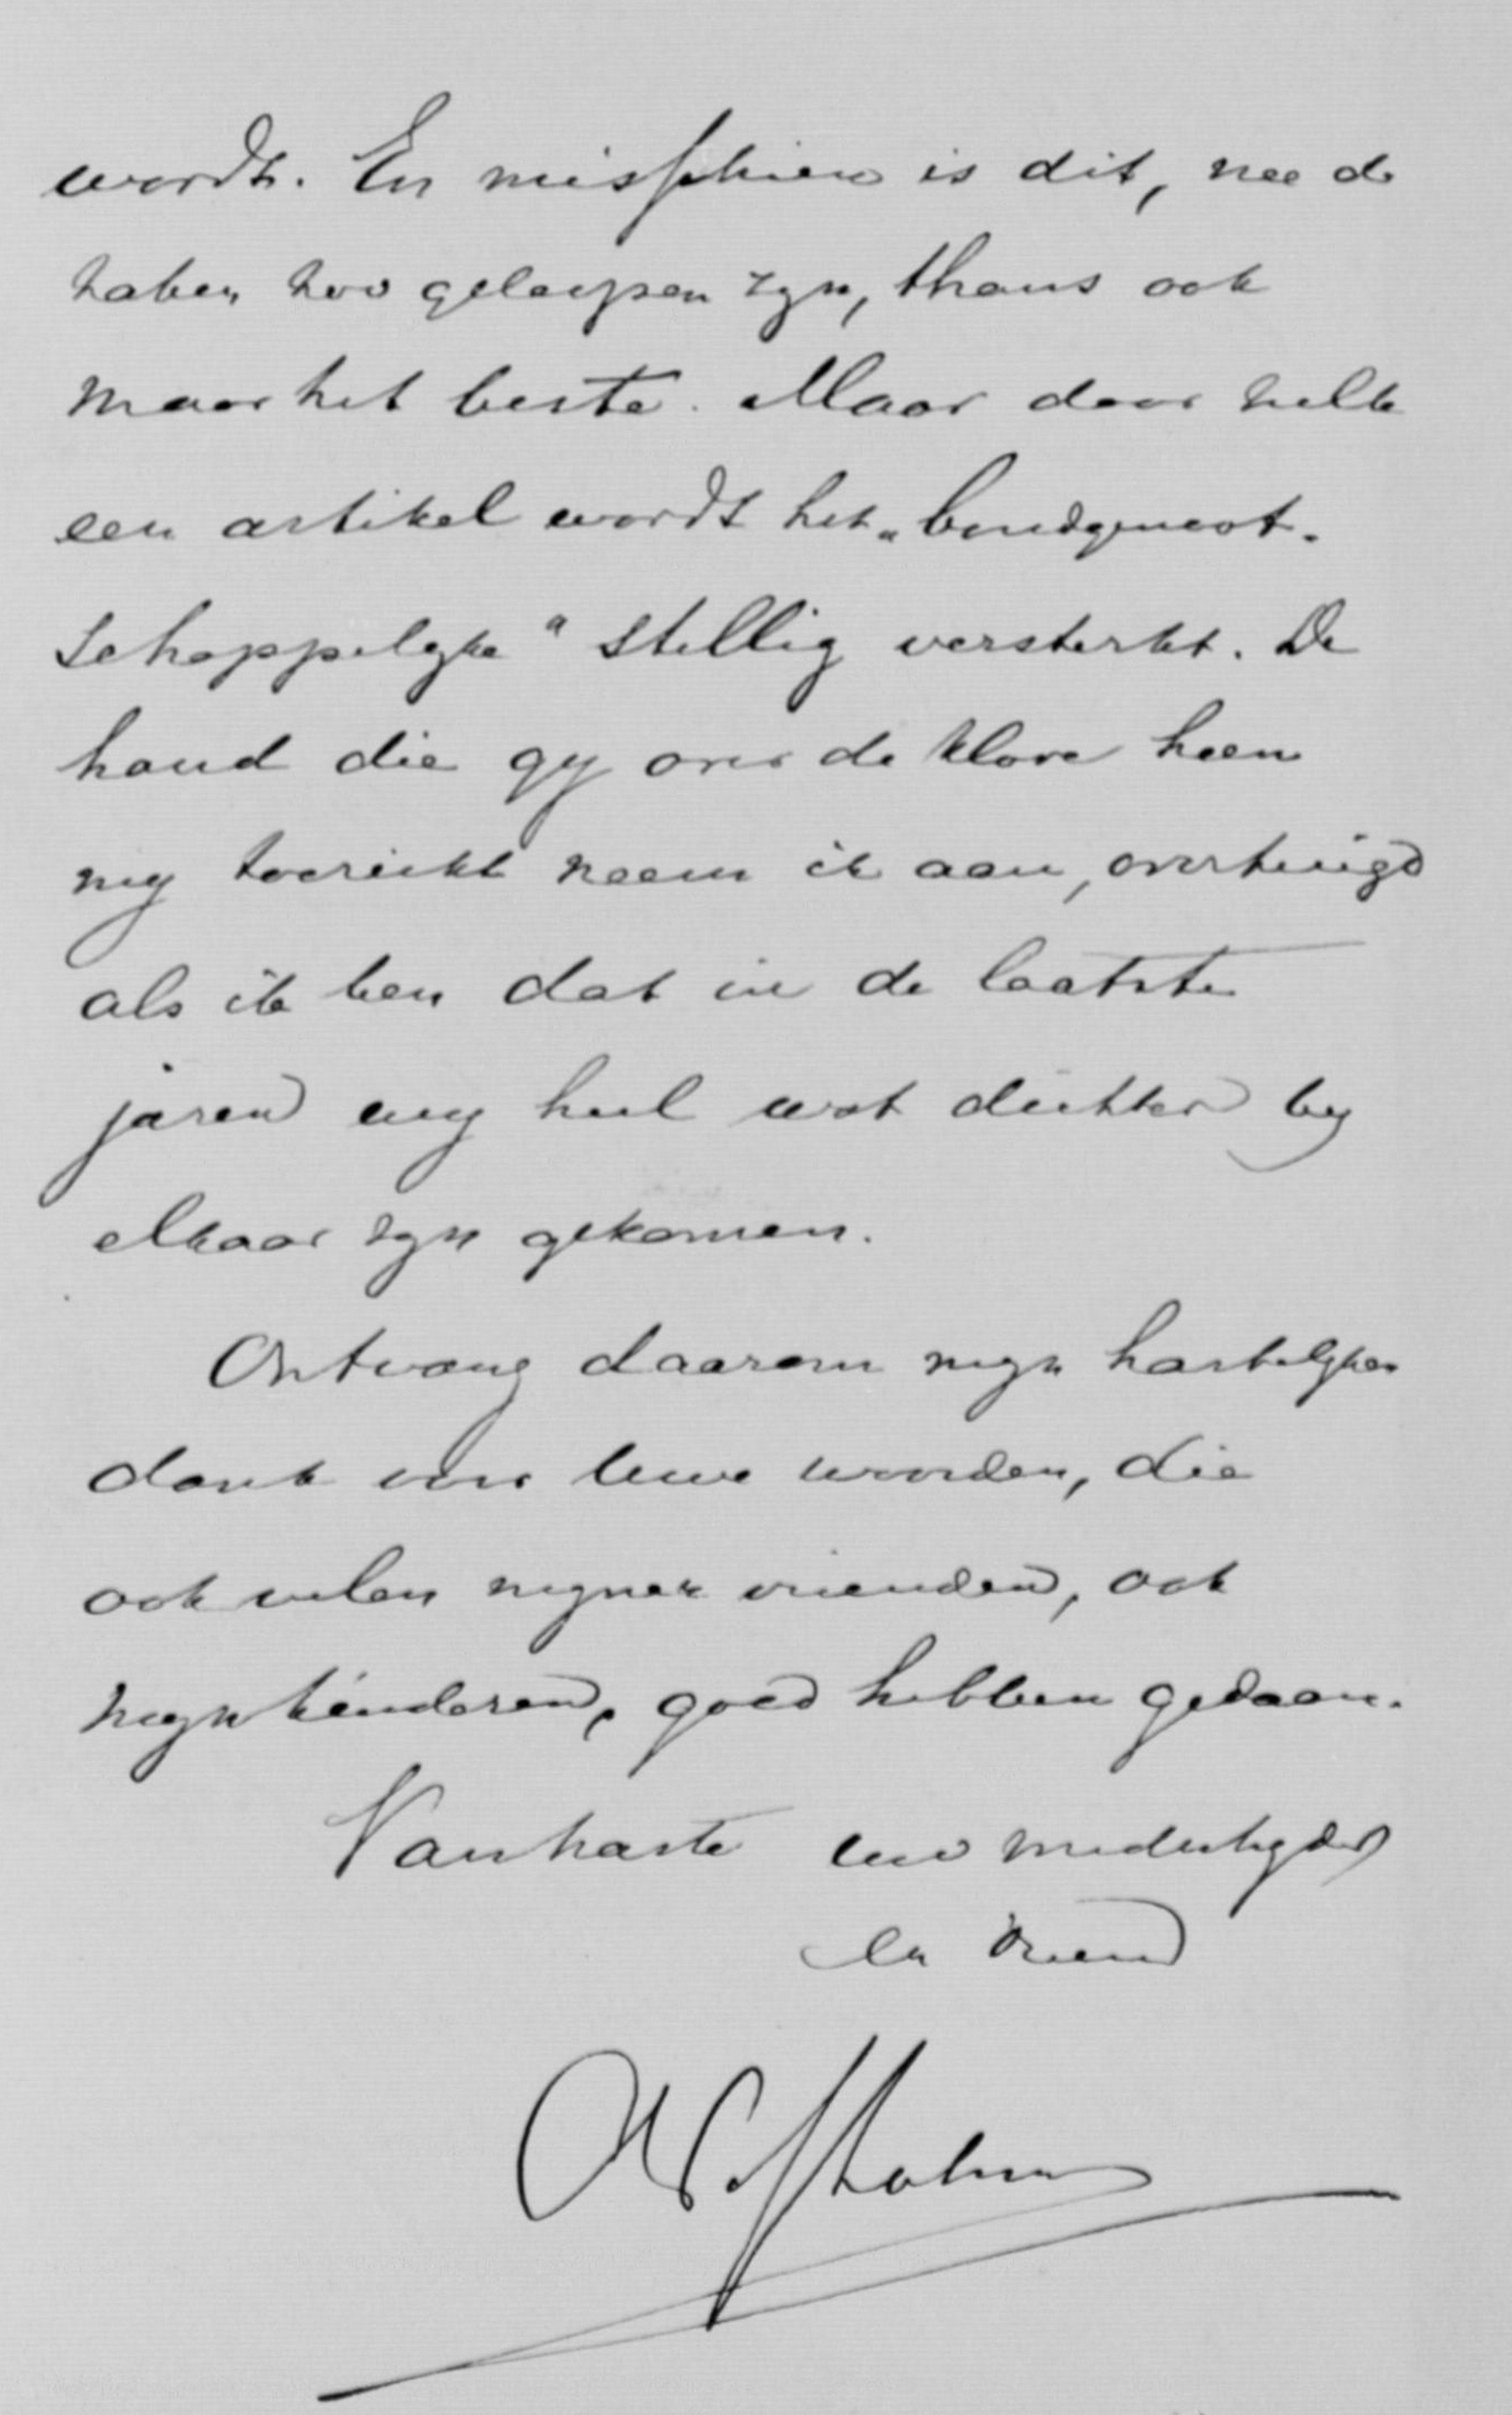 wordt. En misschien is dit, nu de
zaken zoo geloopen zyn, thans ook
maar het beste. Maar door zulk
een artikel wordt het „bondgenoot-
schappelyke" stellig versterkt. De
hand die gy over de klove heen
my toereikt neem ik aan, overtuigd
als ik ben dat in de laatste
jaren wy heel wat dichter by
elkaar zyn gekomen.
Ontvang daarom myn hartelyken
dank voor Uwe woorden, die
ook velen myner vrienden, ook
myn kinderen, goed hebben gedaan.
Van harte uw medestryder
en vriend